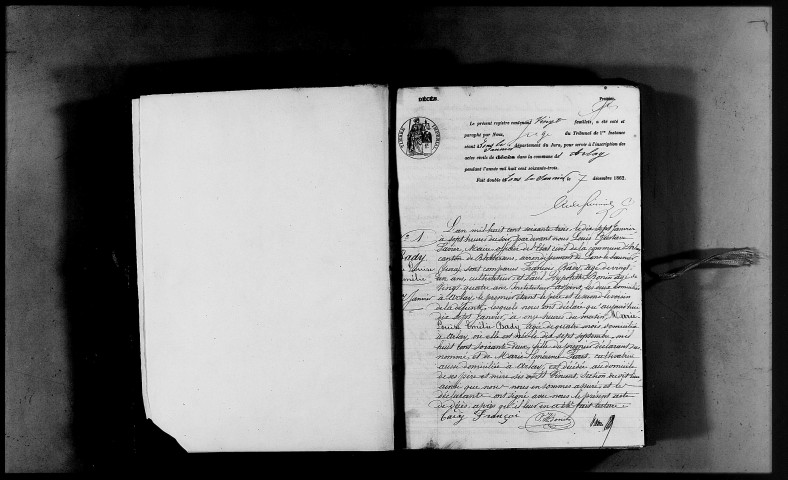 DÉCÈS.
Premier
Le présent registre contenant Vingt feuillets, a été coté et
paraphé par Nous, Juge du Tribunal de 1re Instance
séant à Lons le Saunier département du Jura, pour servir à l'inscription des
actes civils de décès dans la commune d' Arlay
pendant l'année mil huit cent soixante-trois.
Fait double à Lons le Saunier le 7 décembre 1862.
TIMBRE IMPÉRIAL
L'an mil huit cent soixante trois, le dix sept Janvier
à sept heures du soir, par devant nous Louis
Maire officier de l'état civil de la commune d'Arlay
canton de Bletterans, arrondissement de Lons le Saunier
(Jura) sont comparus François Bady, âgé de vingt
ans cultivateur, et Louis Hypolith Bonin âgé de
Vingt quatre ans Instituteur adjoint, les deux domiciliés
à Arlay, le premier étant le père et le second voisin
de la défunte, lesquels nous ont déclaré qu'aujourd'hui
dix sept Janvier, à onze heures du matin, Marie
Louise Emélie Bady âgée de quatre mois domiciliée
à Arlay, où elle est née le dix sept septembre mil
huit cent soixante deux, fille du premier déclarant
nommé, et de Marie cultivatrice
aussi domiciliée à Arlay, est décédée au domicile
de ses père et mère sis à St Vincent, section
ainsi que nous nous en sommes assuré, et les
déclarants ont signé avec nous le présent acte
de décès, après qu'il leur en a été fait lecture
Bady François
N° 1
Bady
Marie Louise
Emélie
17 Janvier